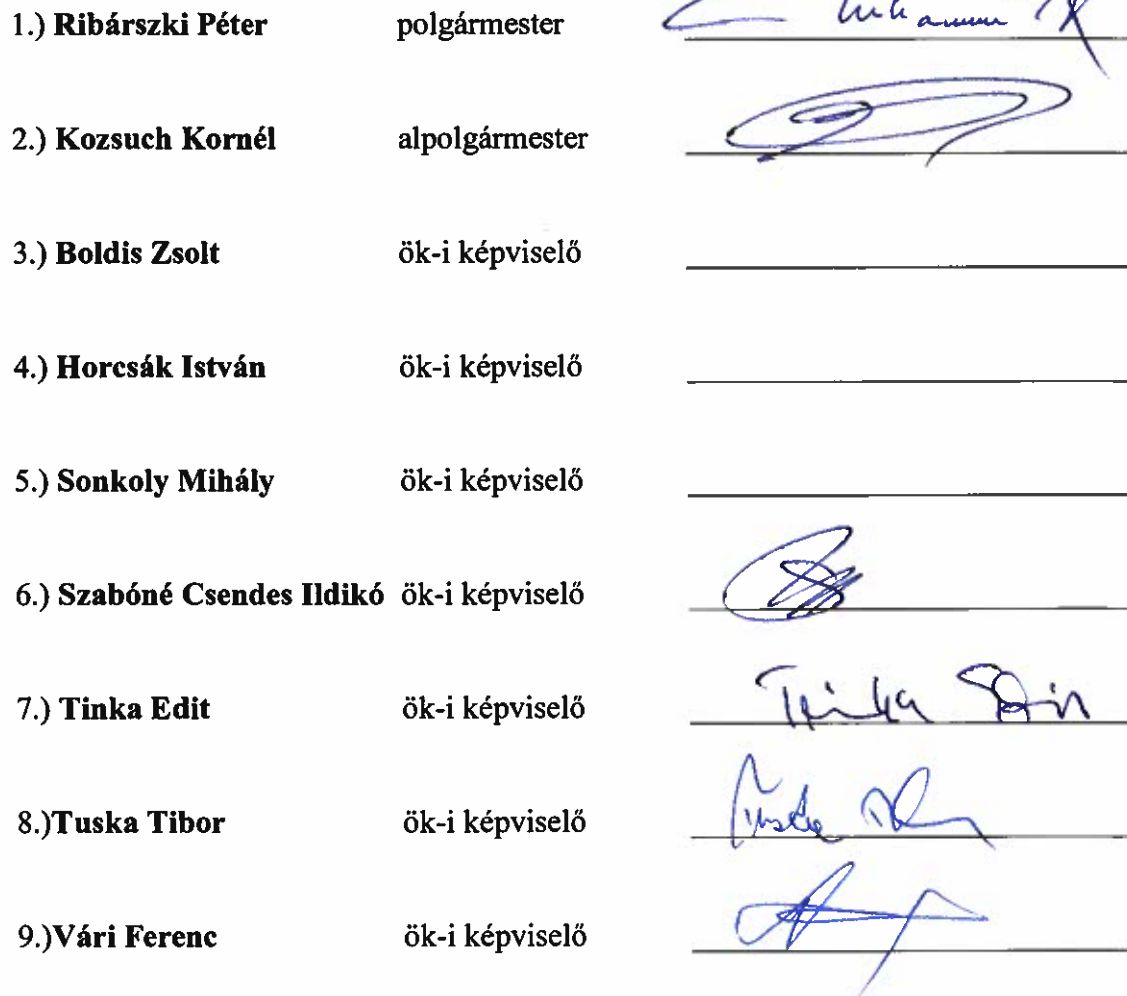 1.) Ribárszki Péter polgármester
2.) Kozsuch Kornél alpolgármester
3.) Boldis Zsolt ök-i képviselő
4.) Horcsák István ök-i képviselő
5.) Sonkoly Mihály ök-i képviselő
6.) Szabóné Csendes Ildikó ök-i képviselő
7.) Tinka Edit ök-i képviselő Tinka
8.)Tuska Tibor ök-i képviselő Tuska
9.)Vári Ferenc ök-i képviselő